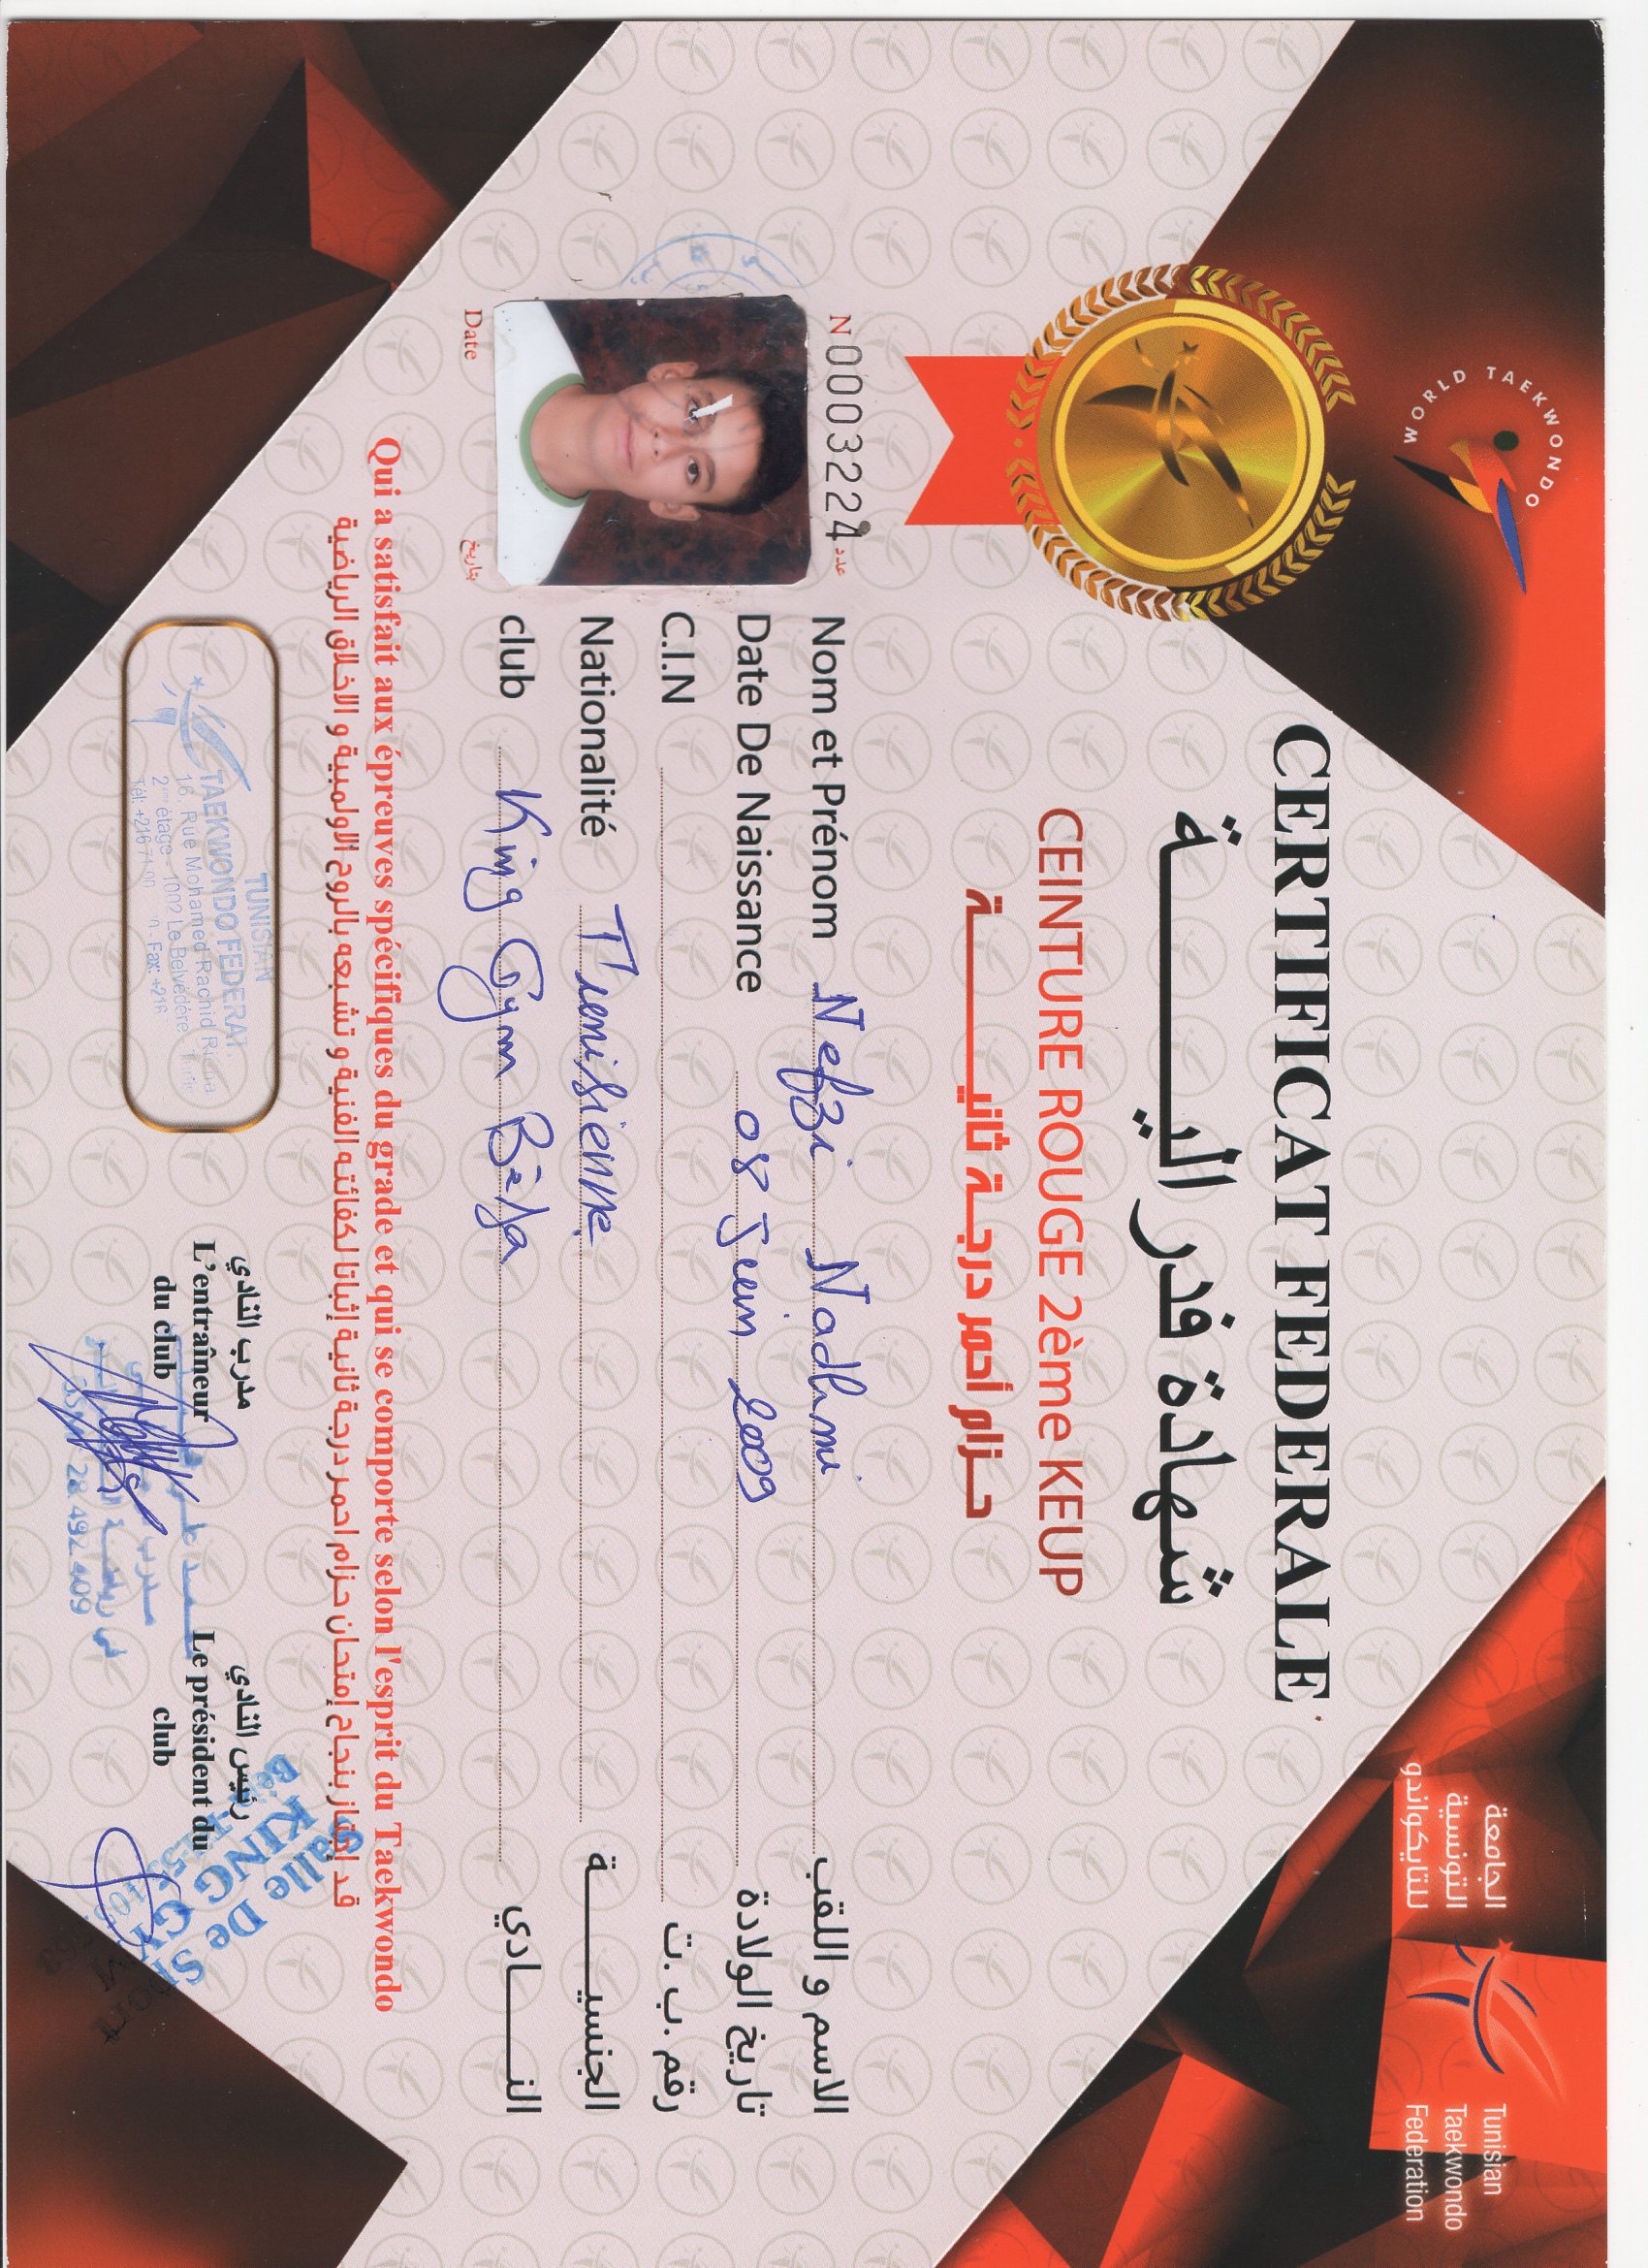 WORLD TAEKWONDO
الجامعة
التونسية
للتايكواندو
Tunisian
Taekwondo
Federation
CERTIFICAT FEDERALE
شهادة فدراليـــــة
CEINTURE ROUGE 2ème KEUP
حـزام أحمر درجـة ثانيـــــة
N 0003224 عدد
Nom et Prénom Nefzi Nadhmi الاسم و اللقب
Date De Naissance 08 Juin 2009 تاريخ الولادة
C.I.N رقم .ب .ت
Nationalité Tunisienne الجنسيـــــة
club King Gym Béja النـــادي
Date بتاريخ
Qui a satisfait aux épreuves spécifiques du grade et qui se comporte selon l'esprit du Taekwondo
قد إجتاز بنجاح إمتحان حزام احمر درجة ثانية إثباتا لكفائته الفنية و تشبعه بالروح الأولمبية و الاخلاق الرياضية
TUNISIAN
TAEKWONDO FEDERAT
16, Rue Mohamed Rachid
2ème étage - 1002 Le Belvédère
Fax: +216
مدرب النادي
L'entraîneur
du club
مدرب
28.492.409
رئيس النادي
Le président du
club
Salle De Sport
KING GYM